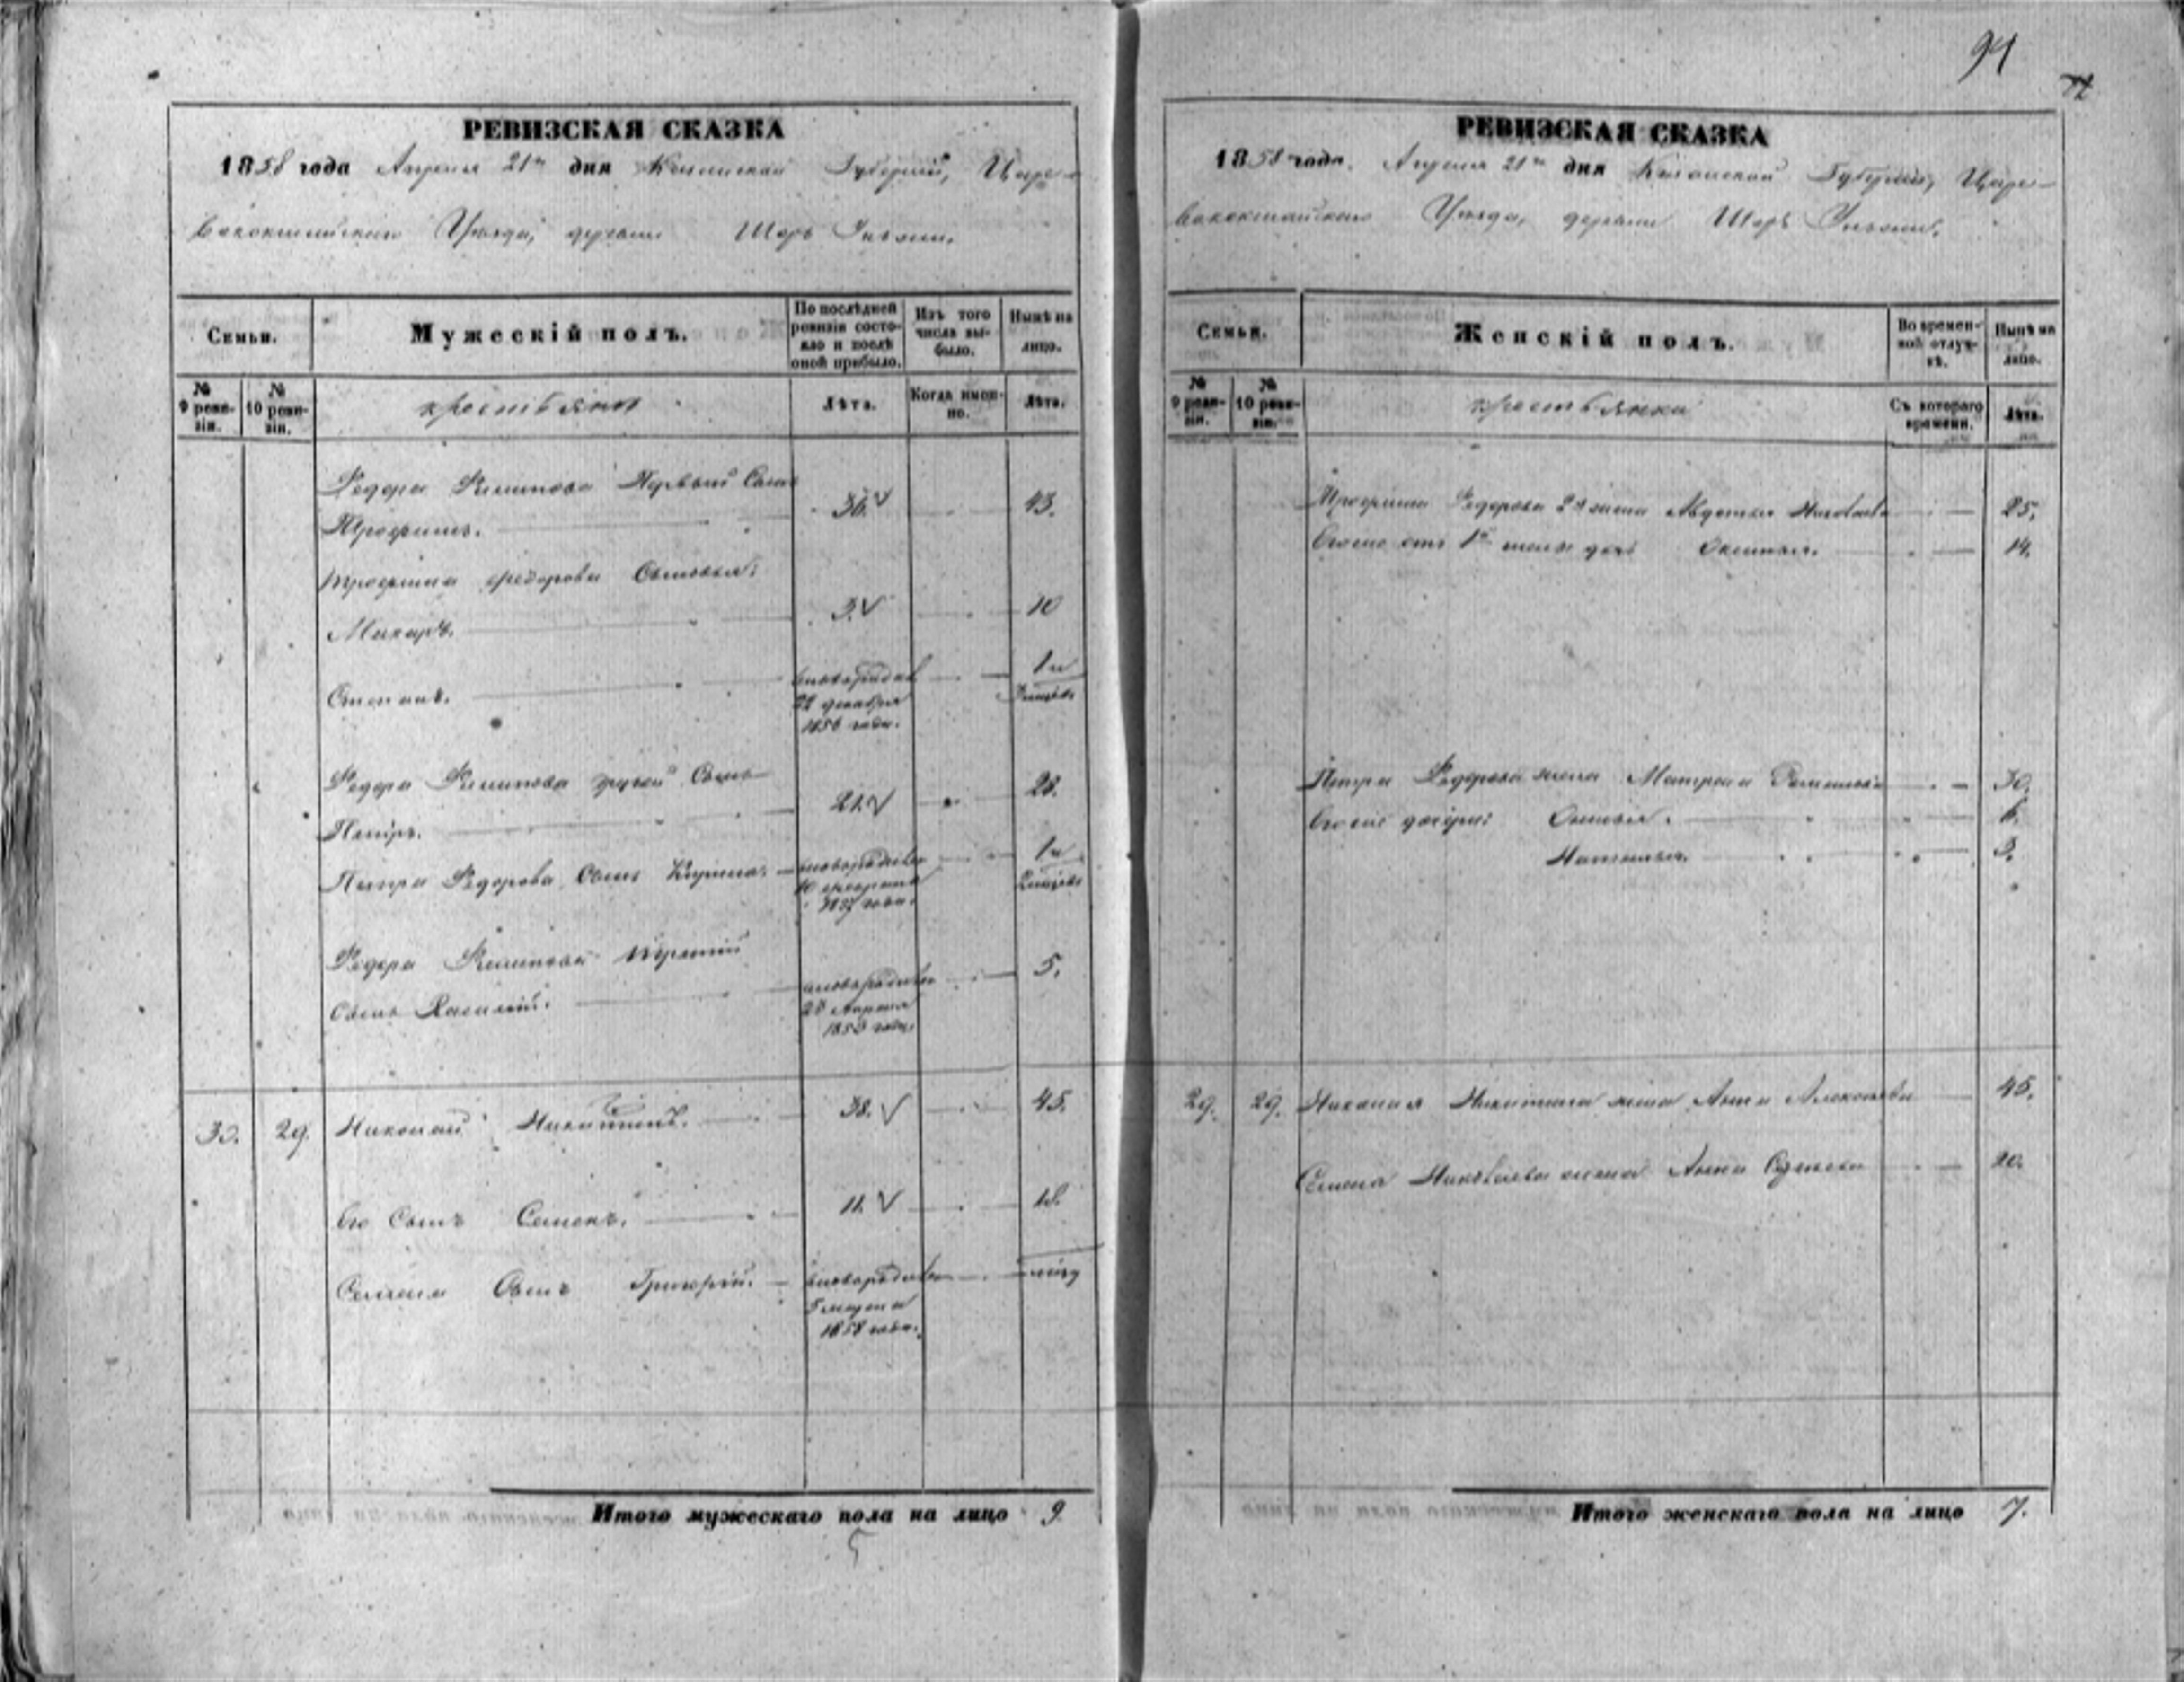 94
РЕВИЗСКАЯ СКАЗКА
1858 года Апреля 21го дня Казанской Губерніи, Царе-
вококшайскаго Уѣзда, деревни Шоръ
Семьи.
Мужескій полъ.
По послѣдней ревизіи состояло и послѣ оной прибыло.
Изъ того числа выбыло.
Нынѣ на лицо.
№ 9 ревизіи.
№ 10 ревизіи.
крестьяне
Лѣта.
Когда именно.
Лѣта.
Федора Первый Сынъ
Трофимъ. 36. 43.
Трофима Федорова Сыновья:
Макаръ. 3. 10
Степанъ. вновьрожден 1 и
22 декабря
1856 года.
Федора другой Сынъ
Петръ. 21. 28.
Петра Федорова Сынъ вновьрожден 1 и
10 февраля
1857 года.
Федора третій
Сынъ Василій. вновьрожден 5.
1853 года.
30. 29. Николай Никитинъ. 38. 45.
Его Сынъ Семенъ. 11. 18.
Семена Сынъ Григорій. вновьрожден
5 марта
1858 года.
Итого мужескаго пола на лицо 9
РЕВИЗСКАЯ СКАЗКА
1858 года. Апреля 21го дня Казанской Губерніи, Царе-
вококшайскаго Уѣзда, деревни Шоръ
Семьи.
Женскій полъ.
Во временной отлучкѣ.
Нынѣ на лицо.
№ 9 ревизіи.
№ 10 ревизіи.
крестьянки
Съ котораго времени.
Лѣта.
Трофима Федорова 2я жена Авдотья 25.
Его отъ 1й жены дочь 14.
Петра Федорова жена Матрена 30.
Его дочери: 6.
Наталья. 3.
29. 29. Николая Никитина жена Анна Алексѣева 45.
Семена Николаева жена Анна 20.
Итого женскаго пола на лицо 7.